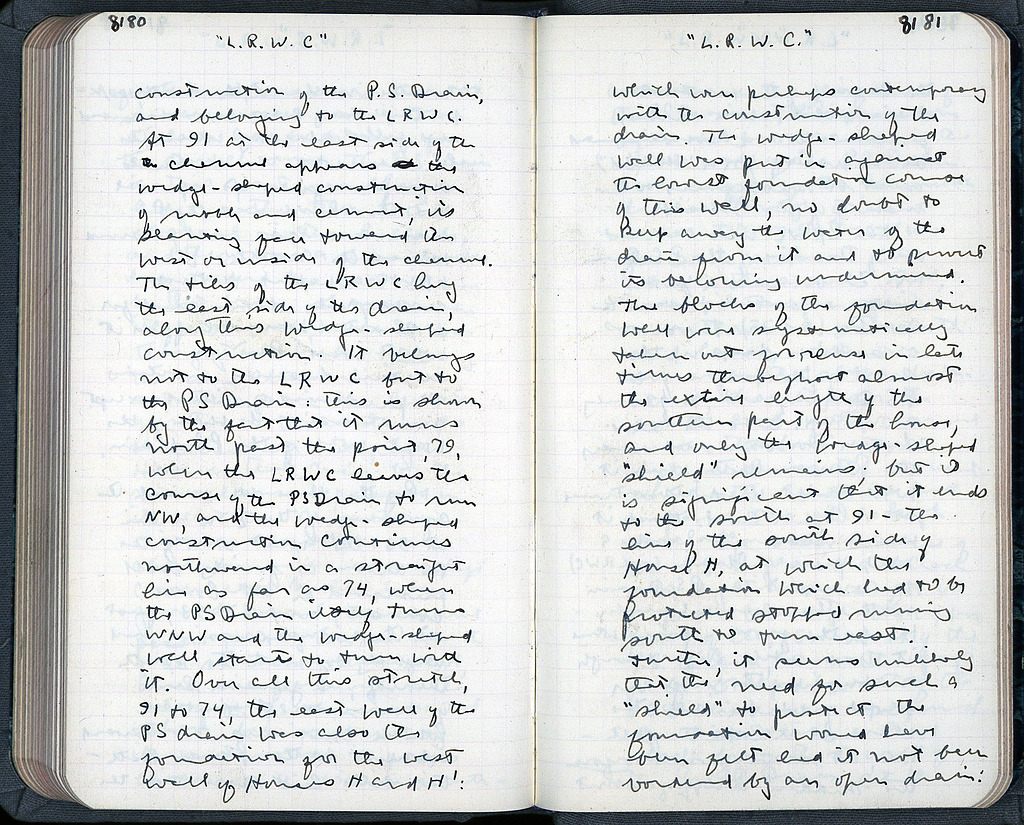 8180
"L.R.W.C"
construction of the P.S. Drain,
and belonging to the LRWC.
At 91 at the east side of the
channel appears the
wedge-shaped construction
of rubble and cement, its
slanting face toward the
west or inside of the channel.
The tiles of the LRWC hug
the east side of the drain,
along this wedge-shaped
construction. It belongs
not to the LRWC but to
the PS Drain. This is shown
by the fact that it runs
north past the point, 79,
where the LRWC leaves the
course of the PS Drain to run
NW, and the wedge-shaped
construction continues
northward in a straight
line as far as 74, where
the PS Drain itself turns
WNW and the wedge-shaped
wall starts to turn with
it. Over all this stretch,
91 to 74, the east wall of the
PS drain was also the
foundation for the west
wall of Houses H and H'.
8181
"L.R.W.C."
which were perhaps contemporary
with the construction of the
drain. The wedge-shaped
wall was put in against
the lowest foundation course
of this wall, no doubt to
keep away the water of the
drain from it and to prevent
its becoming undermined.
The blocks of the foundation
wall were systematically
taken out for reuse in late
times throughout almost
the entire length of the
southern part of the house,
and only the wedge-shaped
"shield" remains. but it
is significant that it ends
to the south at 91 - the
line of the south side of
House H, at which the
foundation which had to be
protected stopped running
south to turn east.
Further, it seems unlikely
that the need for such a
"shield" to protect the
foundation would have
been felt had it not been
by an open drain.